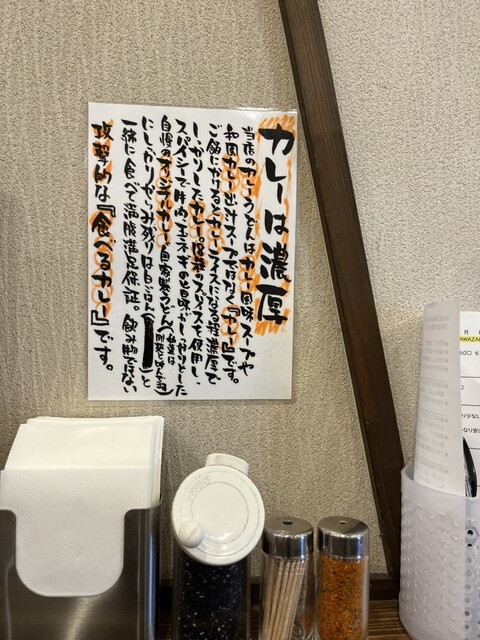 カレーは濃厚
当店のカレーうどんはカレー風味スープや
和風カレーだし汁スープではなく『カレー』です。
ご飯にかけるとカレーライスになる程濃厚で
しっかりしたカレー。のスパイスを使用し、
スパイシーで牛肉、玉ネギの旨味がしっかりとした
自慢のオリジナルカレー。自家製うどん
にしっかりからみ残りは白ごはんと
一緒に食べて満腹満足保証。飲み物ではない
攻撃的な『食べるカレー』です。
月
AWAZA